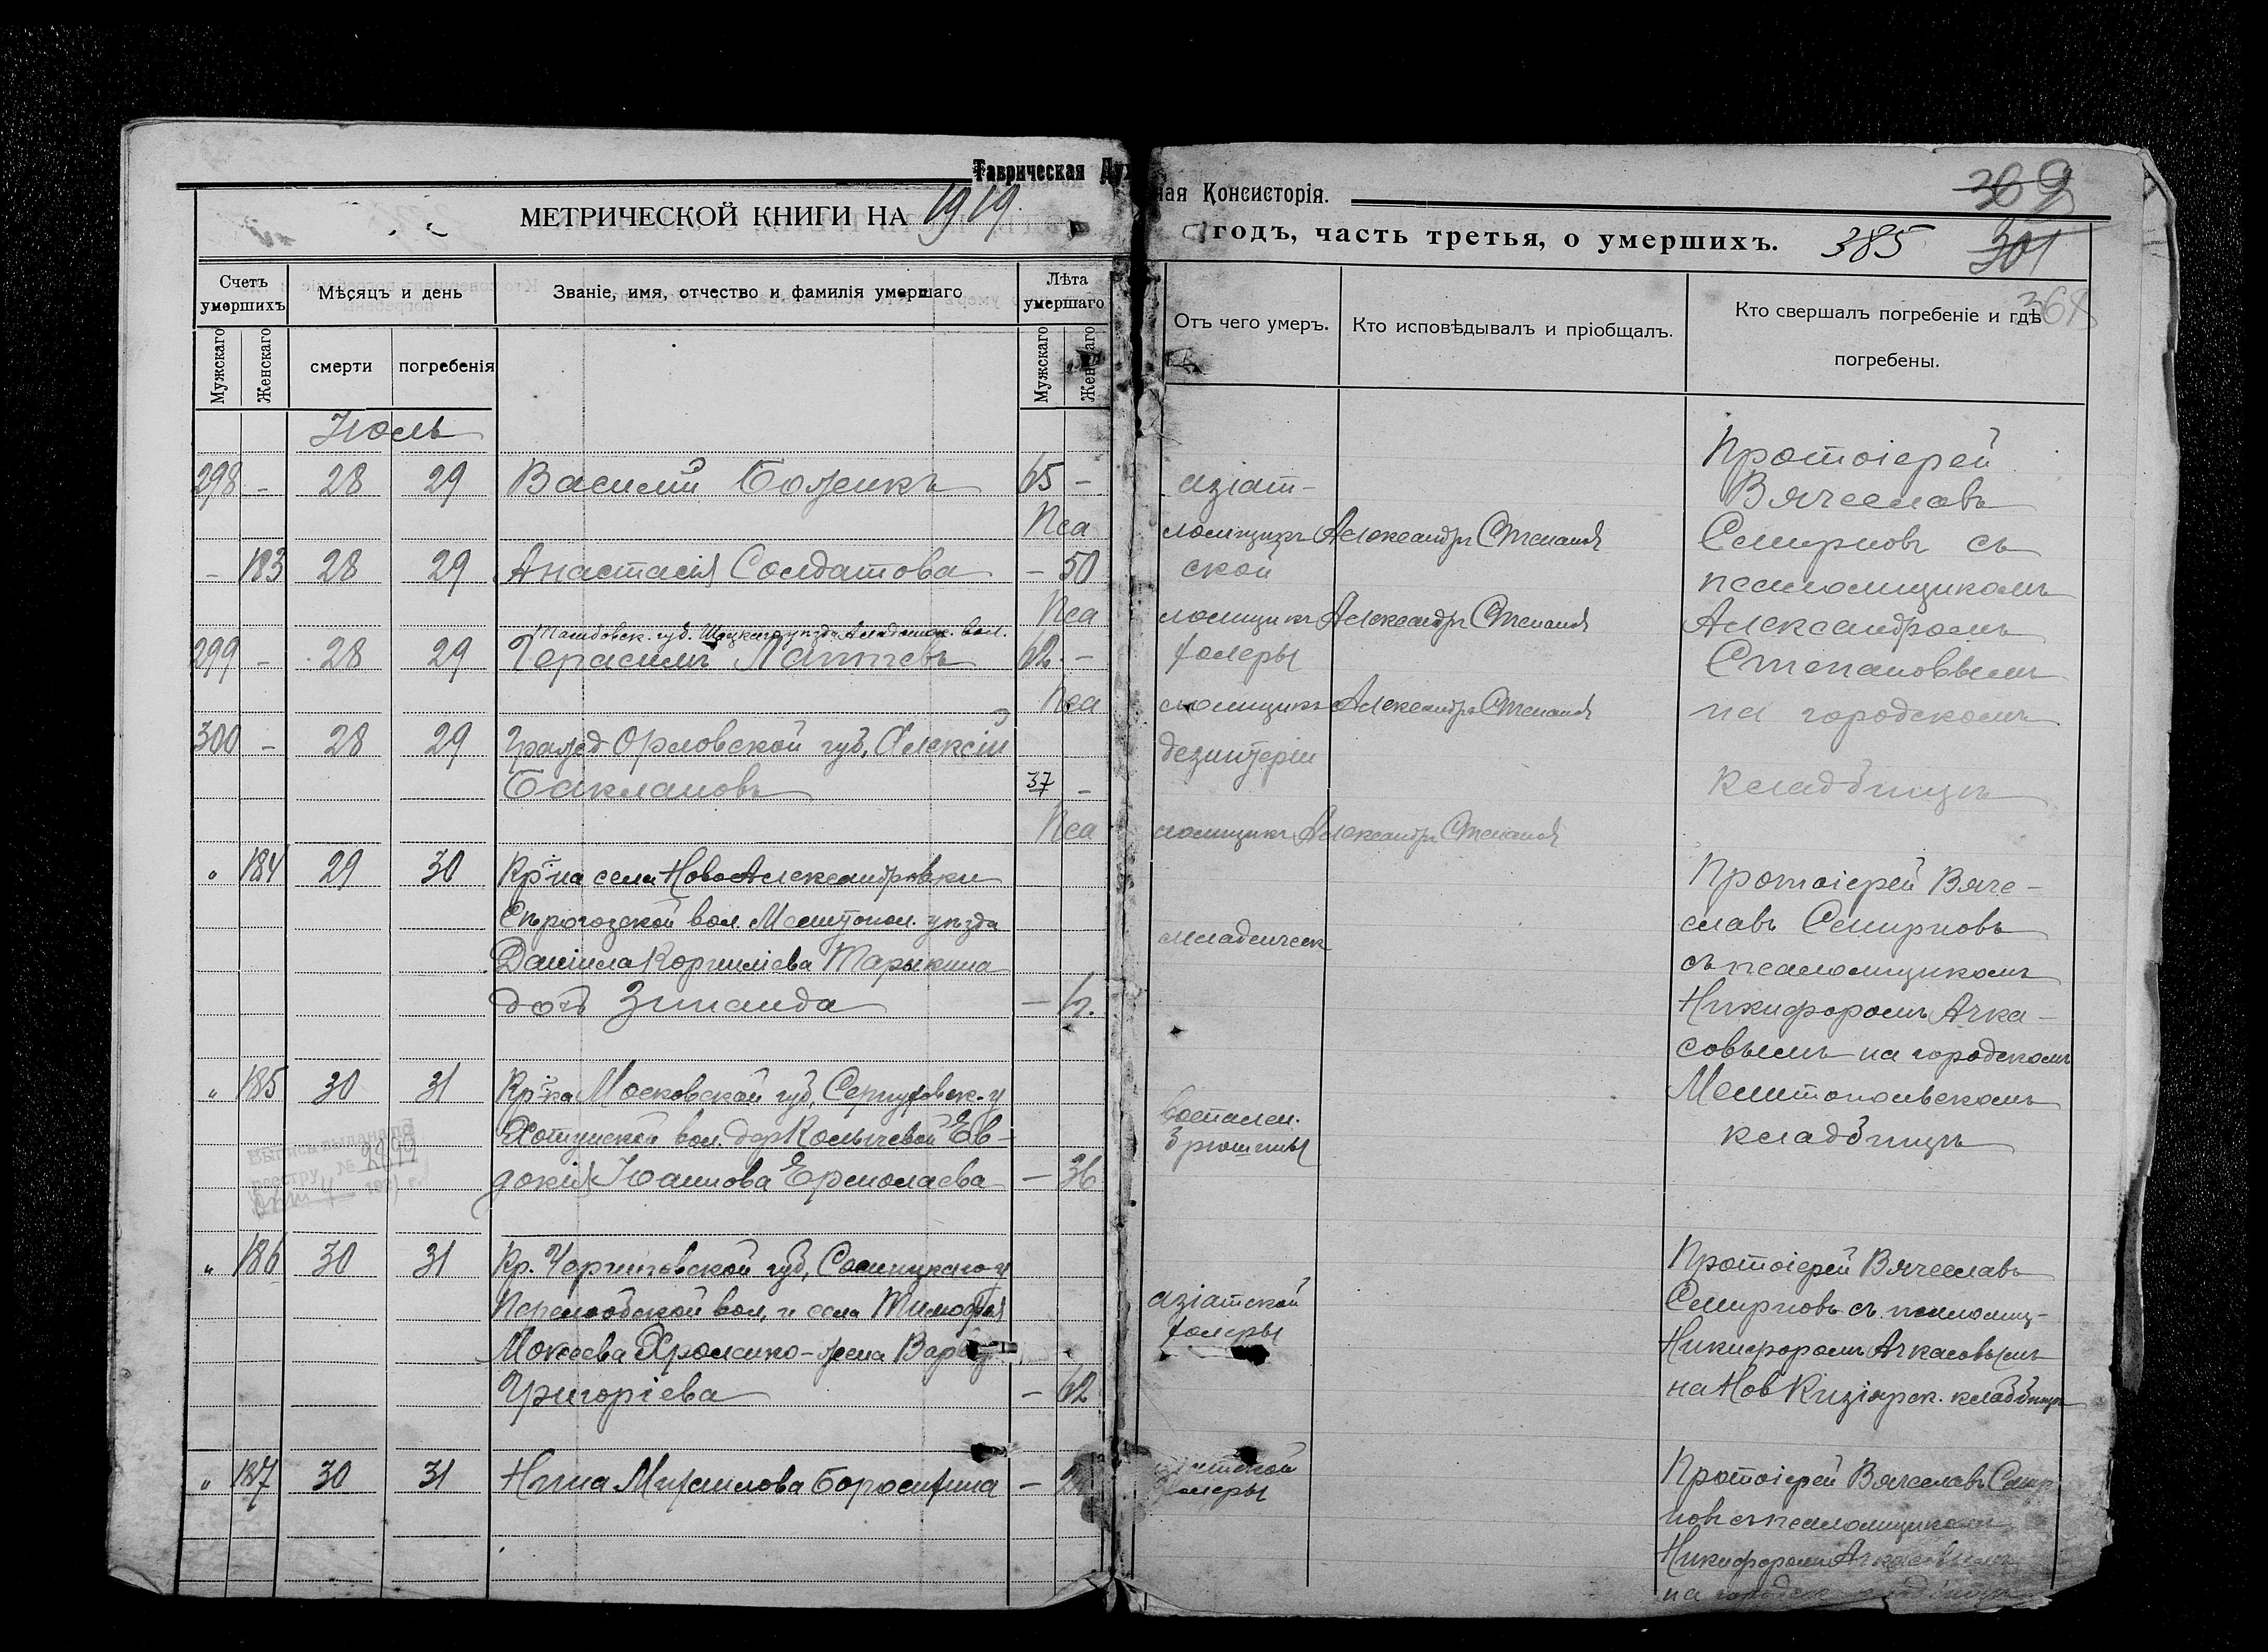 Таврическая Духовная Консисторія.
МЕТРИЧЕСКОЙ КНИГИ НА 1919 годъ, часть третья, о умершихъ. 385
309
301
368
Счетъ умершихъ
Мѣсяцъ и день
Званіе, имя, отчество и фамилія умершаго
Лѣта умершаго
Отъ чего умеръ.
Кто исповѣдывалъ и пріобщалъ.
Кто свершалъ погребеніе и гдѣ
погребены.
Мужскаго
Женскаго
смерти
погребенія
Мужскаго
Женскаго
Іюль
298 - 28 29 Василій 65 - азіат-
Псаломщикъ Александръ Степановъ
- 183 28 29 Анастасія Солдатова - 50 ской
Псаломщикъ Александръ Степановъ
Тамбовск. губ. Шацкаго уѣзда вол.
299 - 28 29 Герасимъ Лаптевъ 62 - холеры
Псаломщикъ Александръ Степановъ
300 - 28 29 Гражд Орловской губ. Алексій дезинтеріи
Баклановъ 37 -
Псаломщикъ Александръ Степановъ
Протоіерей
Вячеславъ
Смирновъ съ
псаломщикомъ
Александромъ
Степановымъ
на городскомъ
кладбищѣ
" 184 29 30 Кр-на села НовоАлександровки
Сѣрогозской вол. Мелитопол. уѣзда
Даніила Корниліева Тарыкина младенческ
дочь Зинаида -
Протоіерей Вяче-
славъ Смирновъ
съ псаломщикомъ
Никифоромъ Ачка-
совымъ на городскомъ
Мелитопольскомъ
кладбищѣ
" 185 30 31 Кр-ка Московской губ. Серпуховск. у
Хотунской вол. дер Колычевой Ев- воспален.
докія Іоаннова Ермолаева - 36 брюшины
Выпись выдана по
реестру № 2899
" 186 30 31 Кр. Черниговской губ. Сосницкаго у
Перелюбской вол. и села Тимофея азіатской
Мокеева Хроленко - жена Варвара холеры
Григоріева - 62
Протоіерей Вячеславъ
Смирновъ съ псаломщ-
Никифоромъ Ачкасовымъ
на Нов Кизіярск. кладбищѣ
" 187 30 31 Нина Михаилова - азіатской
холеры
Протоіерей Вячеславъ Смир
новъ съ псаломщикомъ
Никифоромъ Ачкасовымъ
на городск кладбищѣ